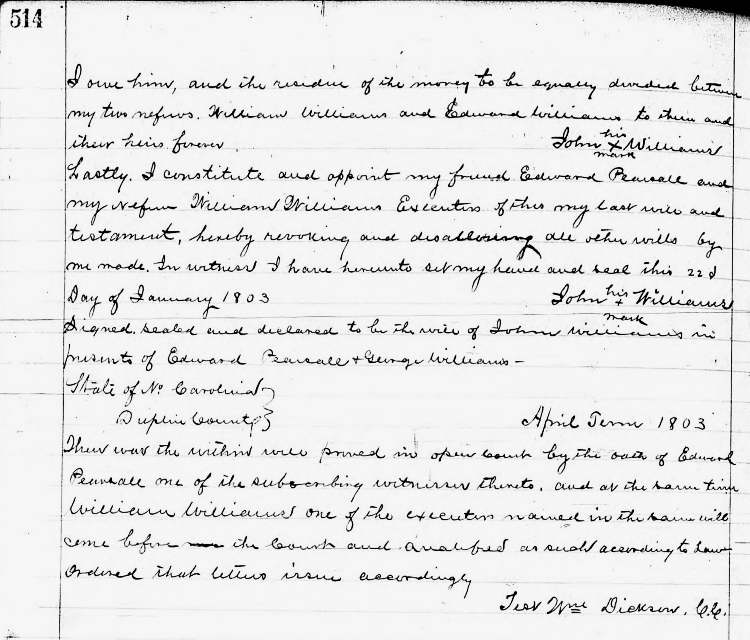 514
I owe him, and the residue of the money to be equally divided between
my two nefews. William Williams and Edward Williams to them and
their heirs forever.
his
John X Williams
mark
Lastly. I constitute and appoint my friend Edward Pearsall and
my Nefew William Williams Executors of this my last will and
testament, hereby revoking and disallowing all other wills by
me made. In witness I have hereunto set my hand and seal this 22d
Day of January 1803
his
John + Williams
mark
Signed sealed and declared to be the will of John Williams in
presents of Edward Pearsall & George Williams -
State of No. Carolina }
Duplin County }
April Term 1803
Then was the within will proved in open Court by the oath of Edward
Pearsall one of the subscribing witnesses thereto. and at the same time
William Williams one of the executors named in the same will
come before the Court and qualified as such according to Law
Ordered that letters issue accordingly
Test Wm Dickson, C.C.